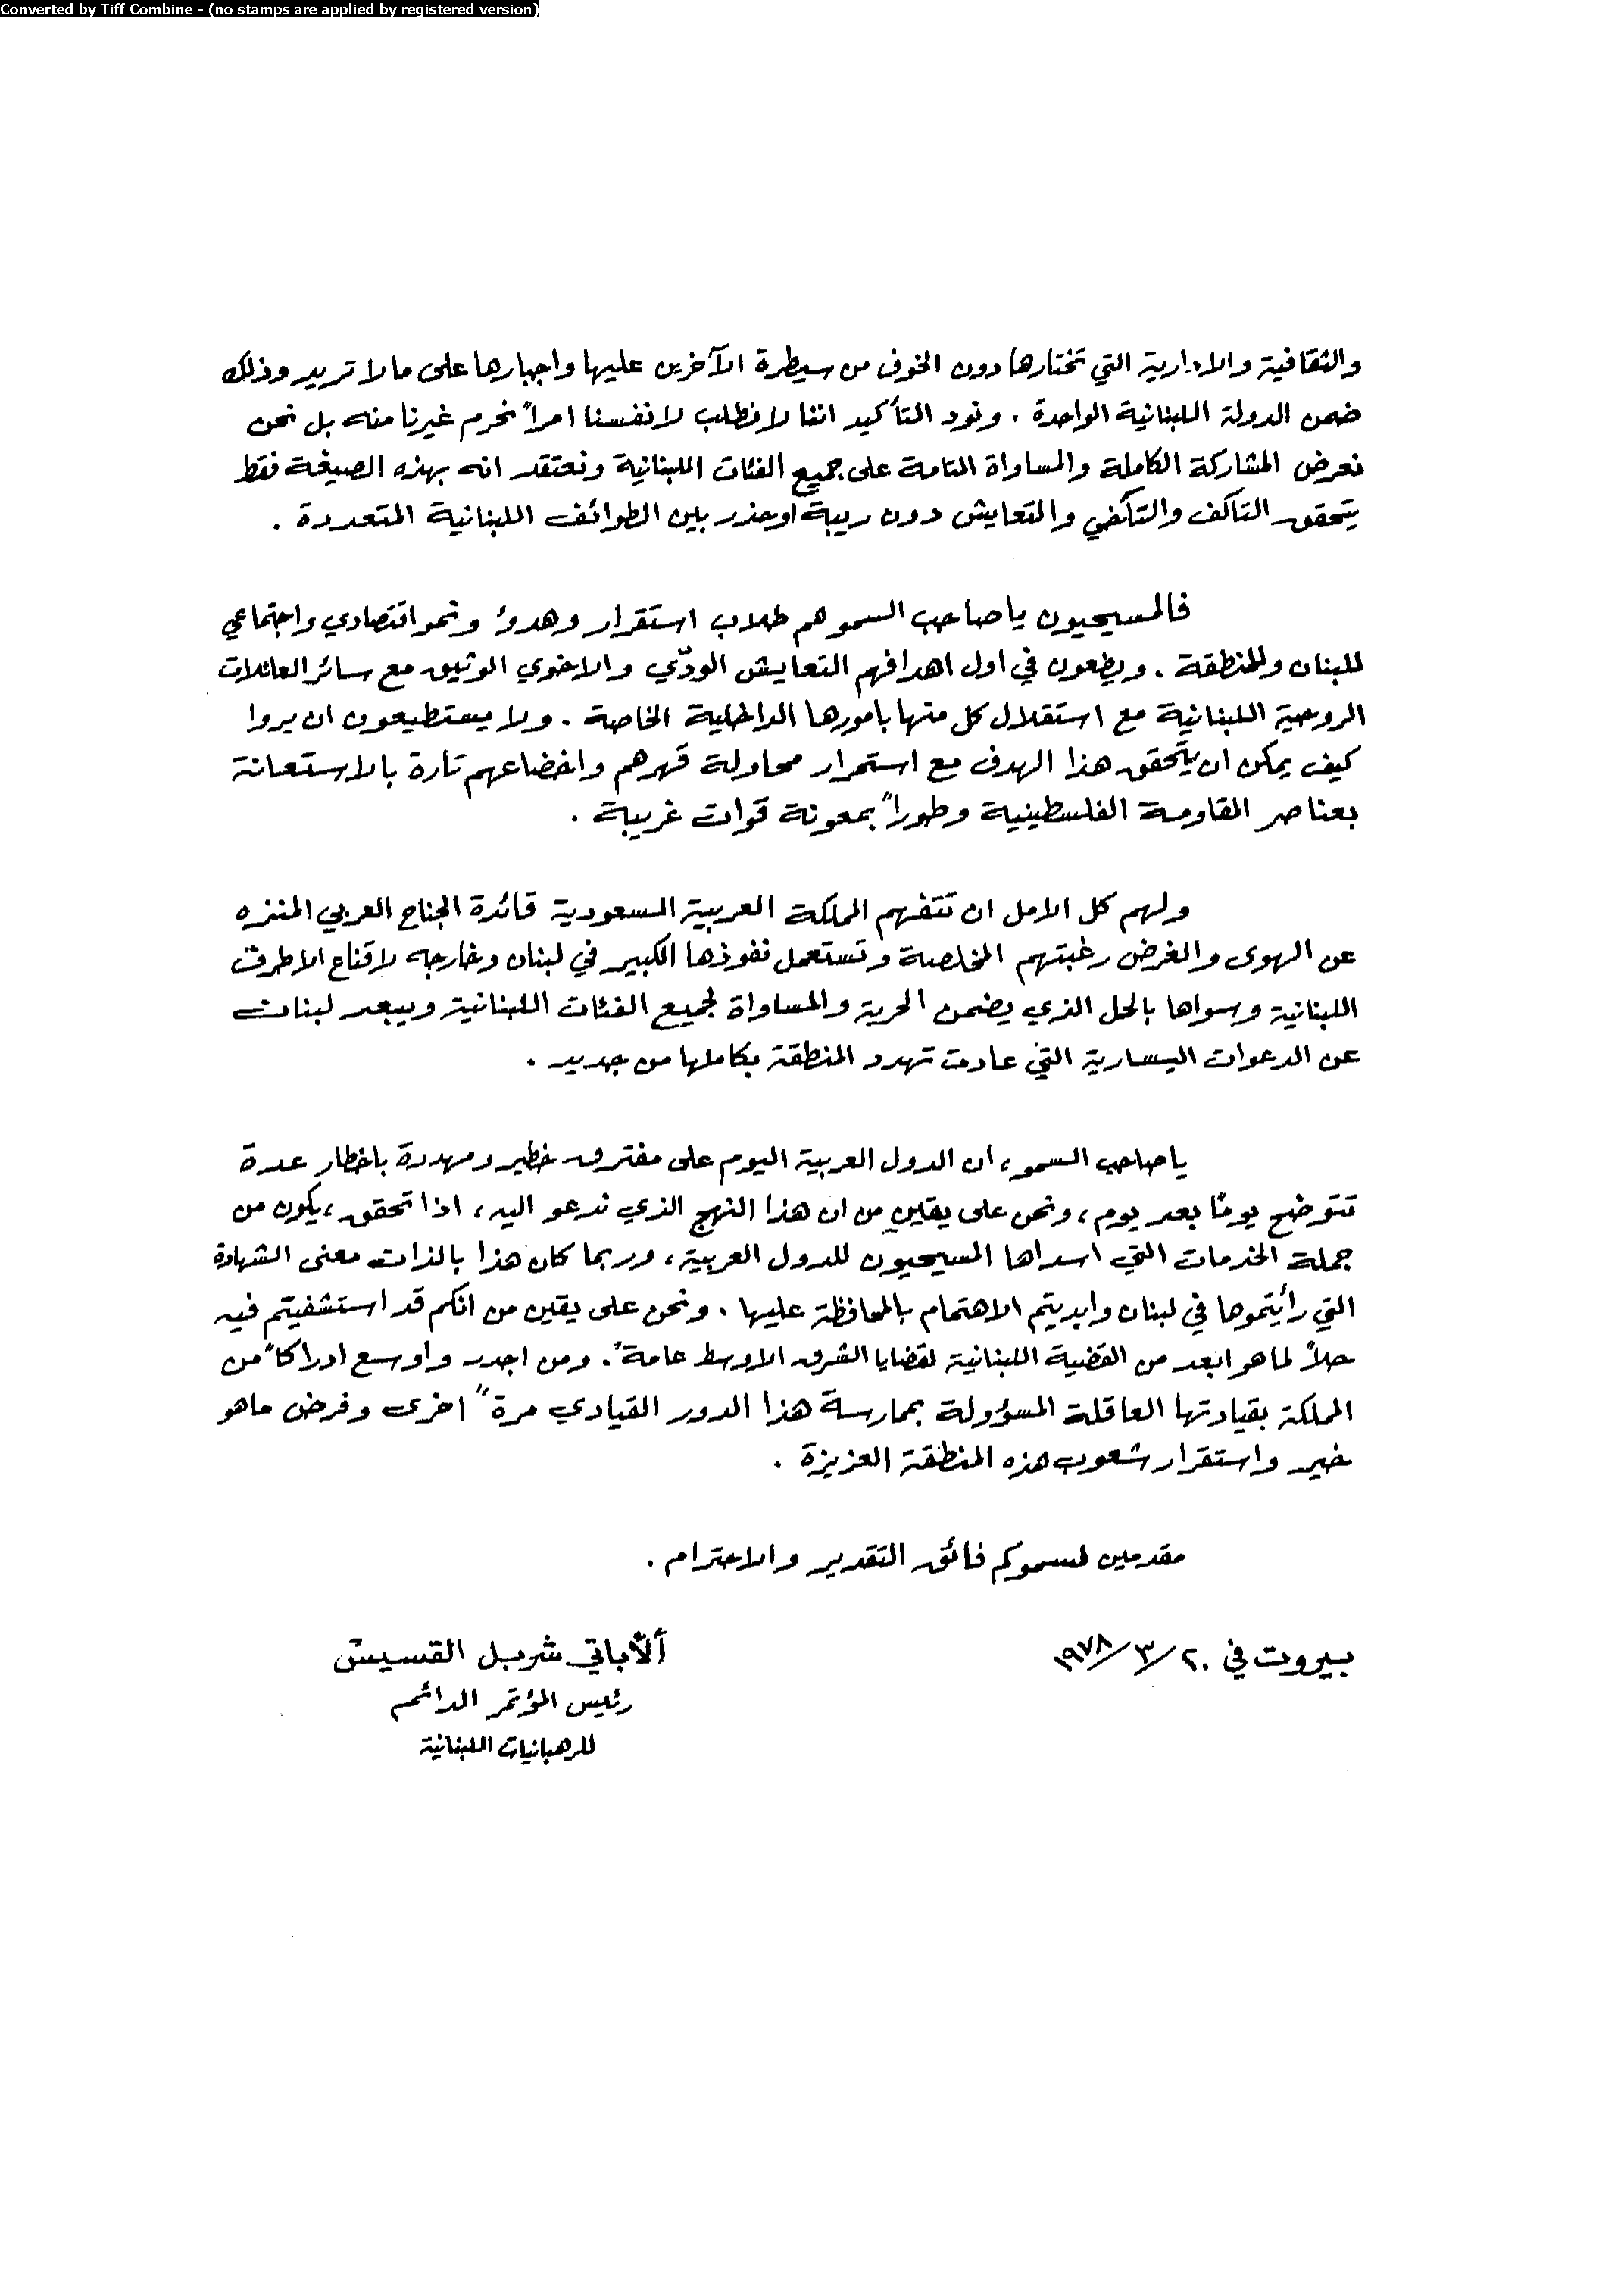 Converted by Tiff Combine - (no stamps are applied by registered version)
والثقافية والادارية التي تختارها دون الخوف من سيطرة الآخرين عليها واجبارها على ما لا تريد وذلك
ضمن الدولة اللبنانية الواحدة . ونود التأكيد اننا لا نطلب لانفسنا امراً نحرم غيرنا منه بل نحن
نعرض المشاركة الكاملة والمساواة التامة على جميع الفئات اللبنانية ونعتقد انه بهذه الصيغة فقط
يتحقق التآلف والتآخي والتعايش دون ريبة او حذر بين الطوائف اللبنانية المتعددة .
فالمسيحيون يا صاحب السمو هم طلاب استقرار وهدؤ ونمو اقتصادي واجتماعي
للبنان وللمنطقة . ويضعون في اول اهدافهم التعايش الودّي والاخوي الوثيق مع سائر العائلات
الروحية اللبنانية مع استقلال كل منها بامورها الداخلية الخاصة . ولا يستطيعون ان يروا
كيف يمكن ان يتحقق هذا الهدف مع استمرار محاولة قهرهم واخضاعهم تارة بالاستعانة
بعناصر المقاومة الفلسطينية وطوراً بمعونة قوات غريبة .
ولهم كل الامل ان تتفهم المملكة العربية السعودية قائدة الجناح العربي المنزه
عن الهوى والغرض رغبتهم المخلصة وتستعمل نفوذها الكبير في لبنان وخارجه لاقناع الاطراف
اللبنانية وسواها بالحل الذي يضمن الحرية والمساواة لجميع الفئات اللبنانية ويبعد لبنان
عن الدعوات اليسارية التي عادت تهدد المنطقة بكاملها من جديد .
يا صاحب السمو، ان الدول العربية اليوم على مفترق خطير ومهددة باخطار عدة
تتوضح يومًا بعد يوم، ونحن على يقين من ان هذا النهج الذي ندعو اليه، اذا تحقق، يكون من
جملة الخدمات التي اسداها المسيحيون للدول العربية، وربما كان هذا بالذات معنى الشهادة
التي رأيتموها في لبنان وابديتم الاهتمام بالمحافظة عليها . ونحن على يقين من انكم قد استشفيتم فيه
حلاً لما هو ابعد من القضية اللبنانية لقضايا الشرق الاوسط عامةً . ومن اجدر واوسع ادراكاً من
المملكة بقيادتها العاقلة المسؤولة بممارسة هذا الدور القيادي مرةً اخرى وفرض ما هو
خير واستقرار شعوب هذه المنطقة العزيزة .
مقدمين لسموكم فائق التقدير والاحترام .
بيروت في ٢٠/٣/١٩٧٨
ألأباتي شربل القسيس
رئيس المؤتمر الدائم
للرهبانيات اللبنانية